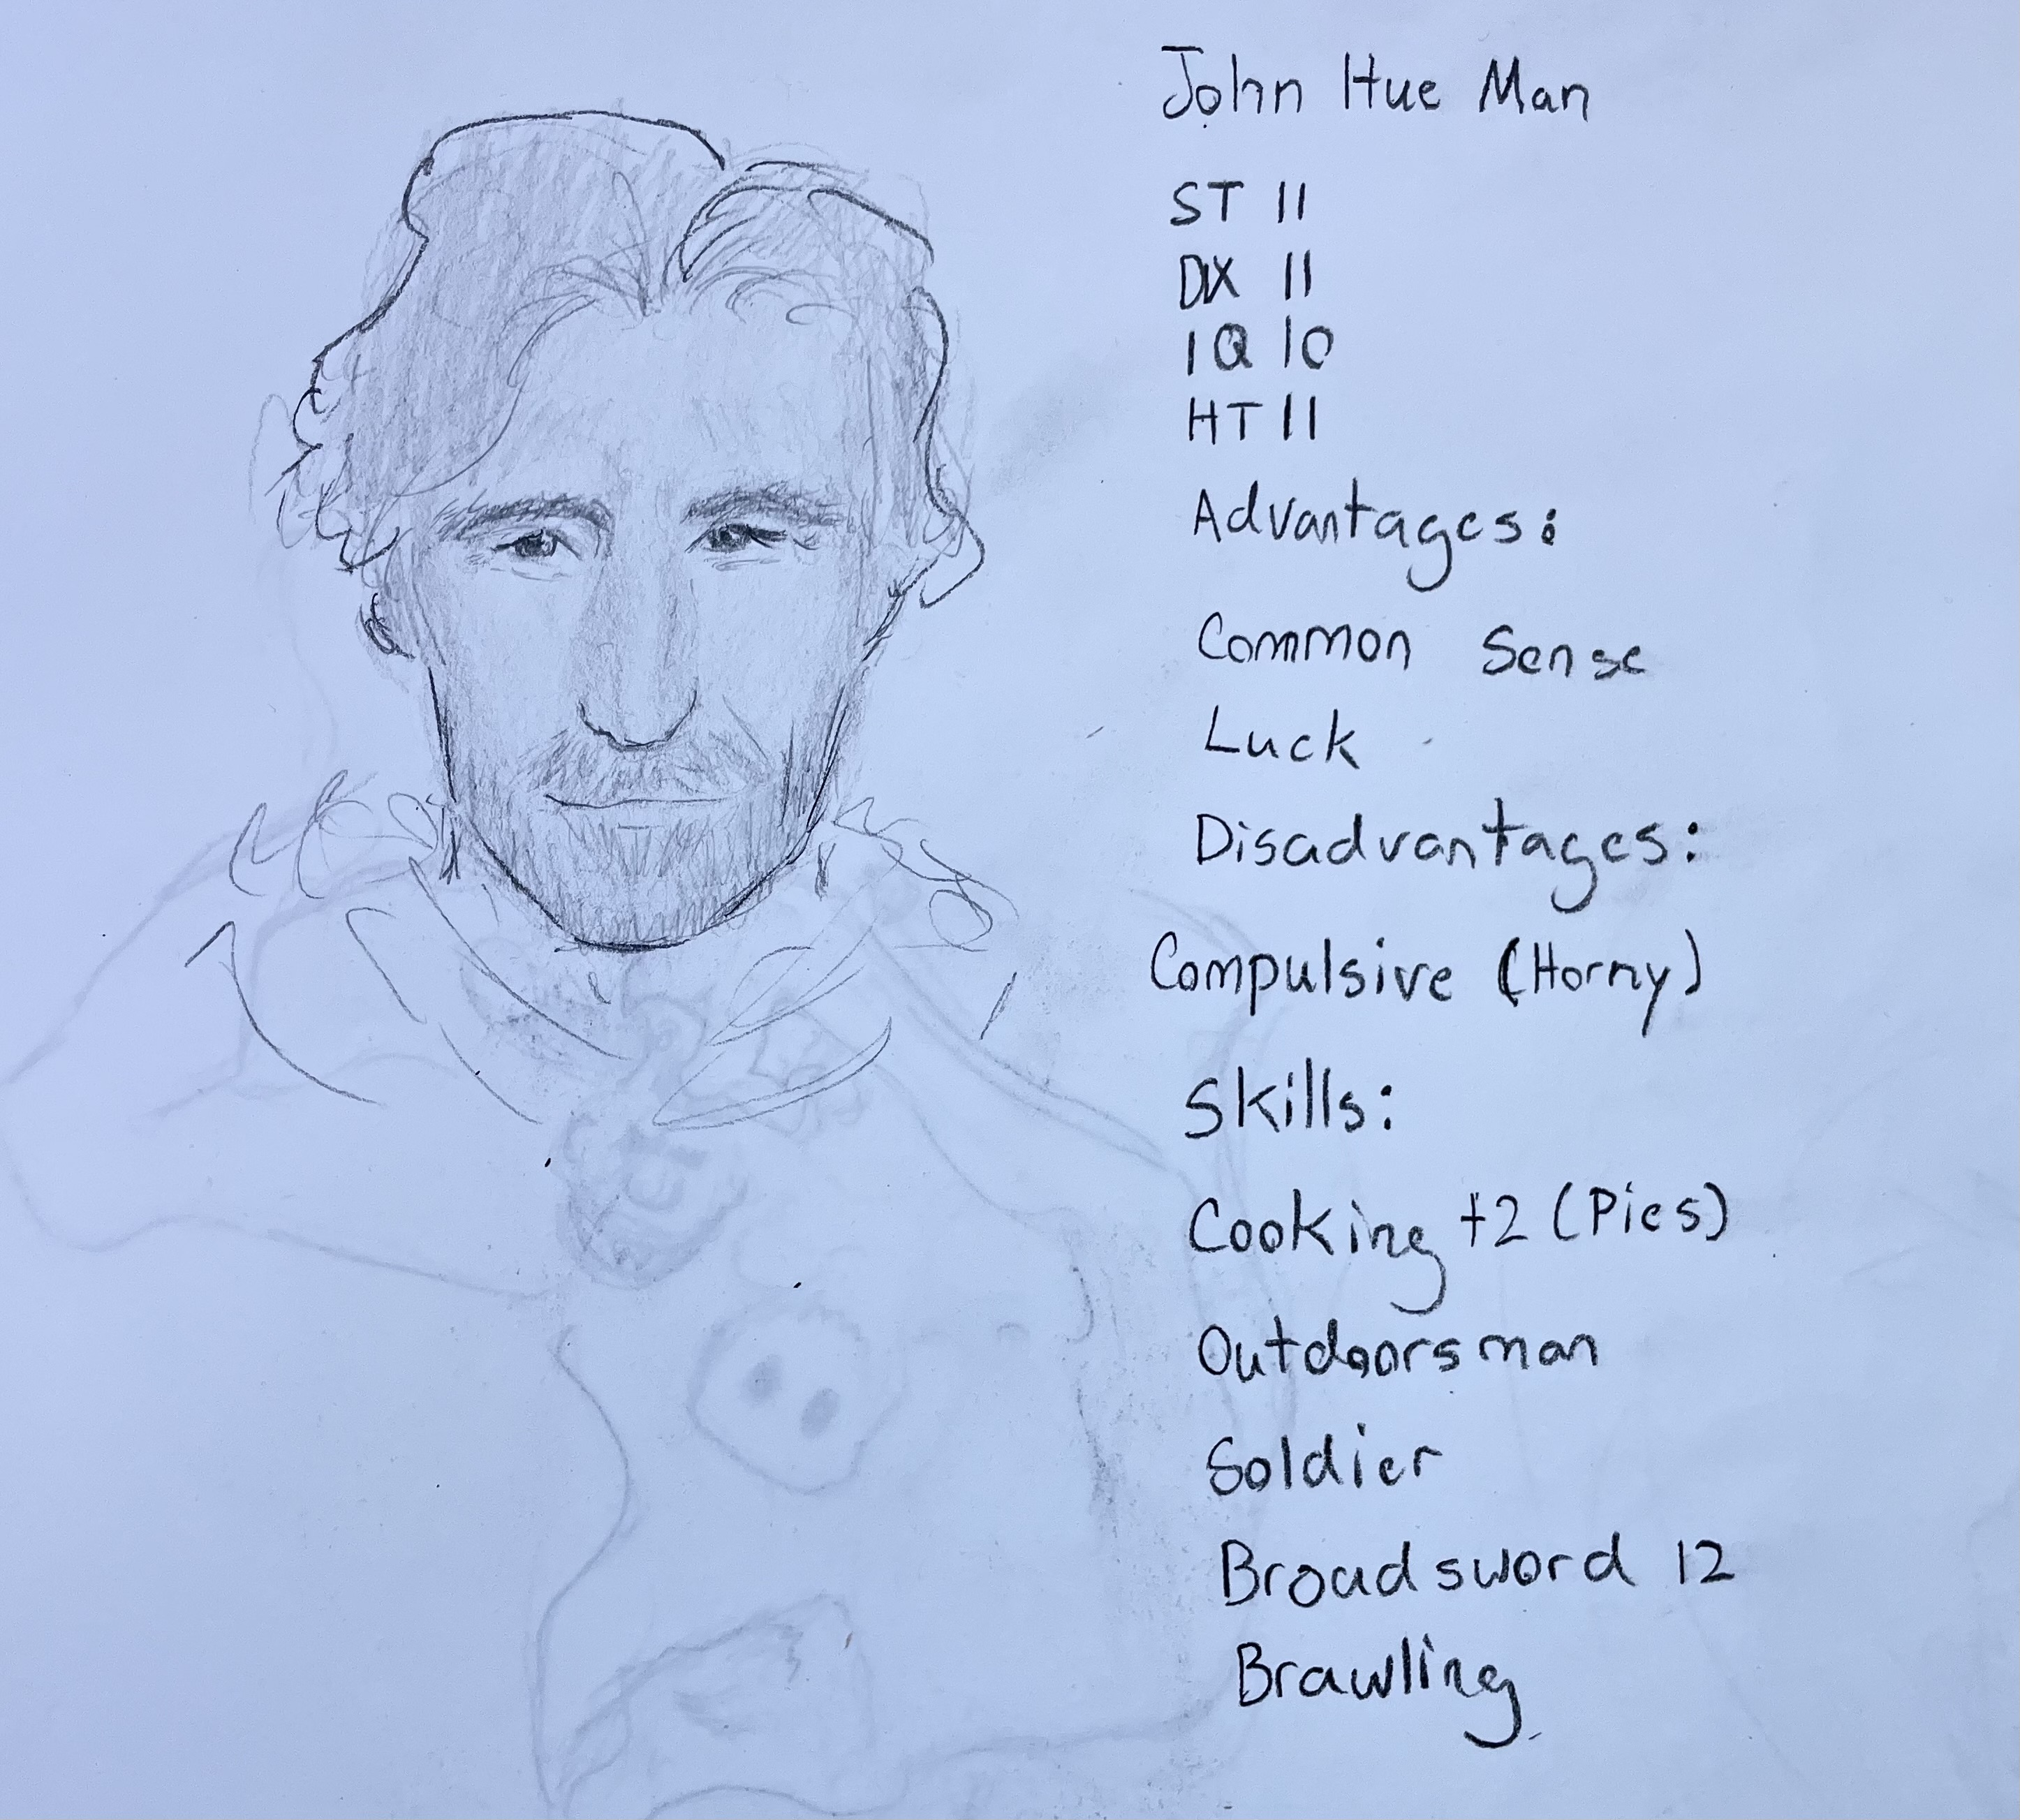 John Hue Man
ST 11
DX 11
IQ 10
HT 11
Advantages:
Common Sense
Luck
Disadvantages:
Compulsive (Horny)
Skills:
Cooking +2 (Pies)
Outdoorsman
Soldier
Broadsword 12
Brawling